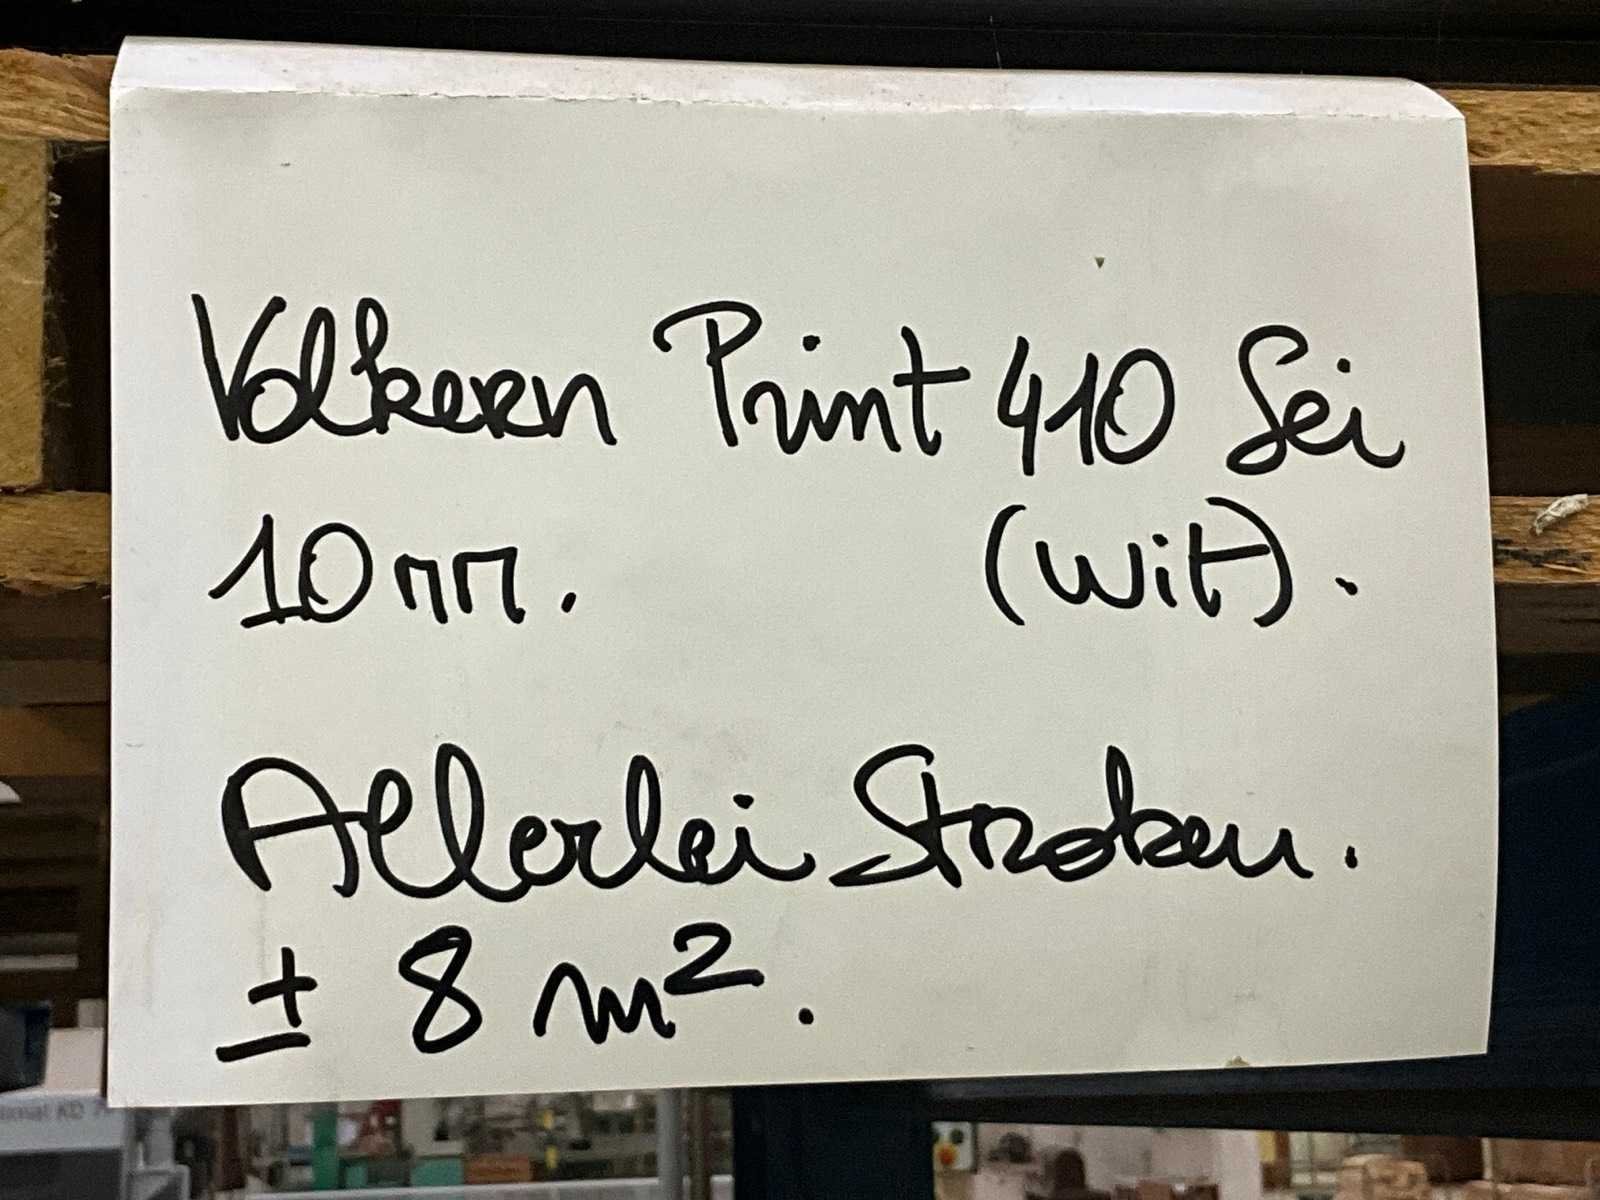 Volkern Print 410 Sei
10 mm. (Wit).
Allerlei Stroken.
± 8 m².